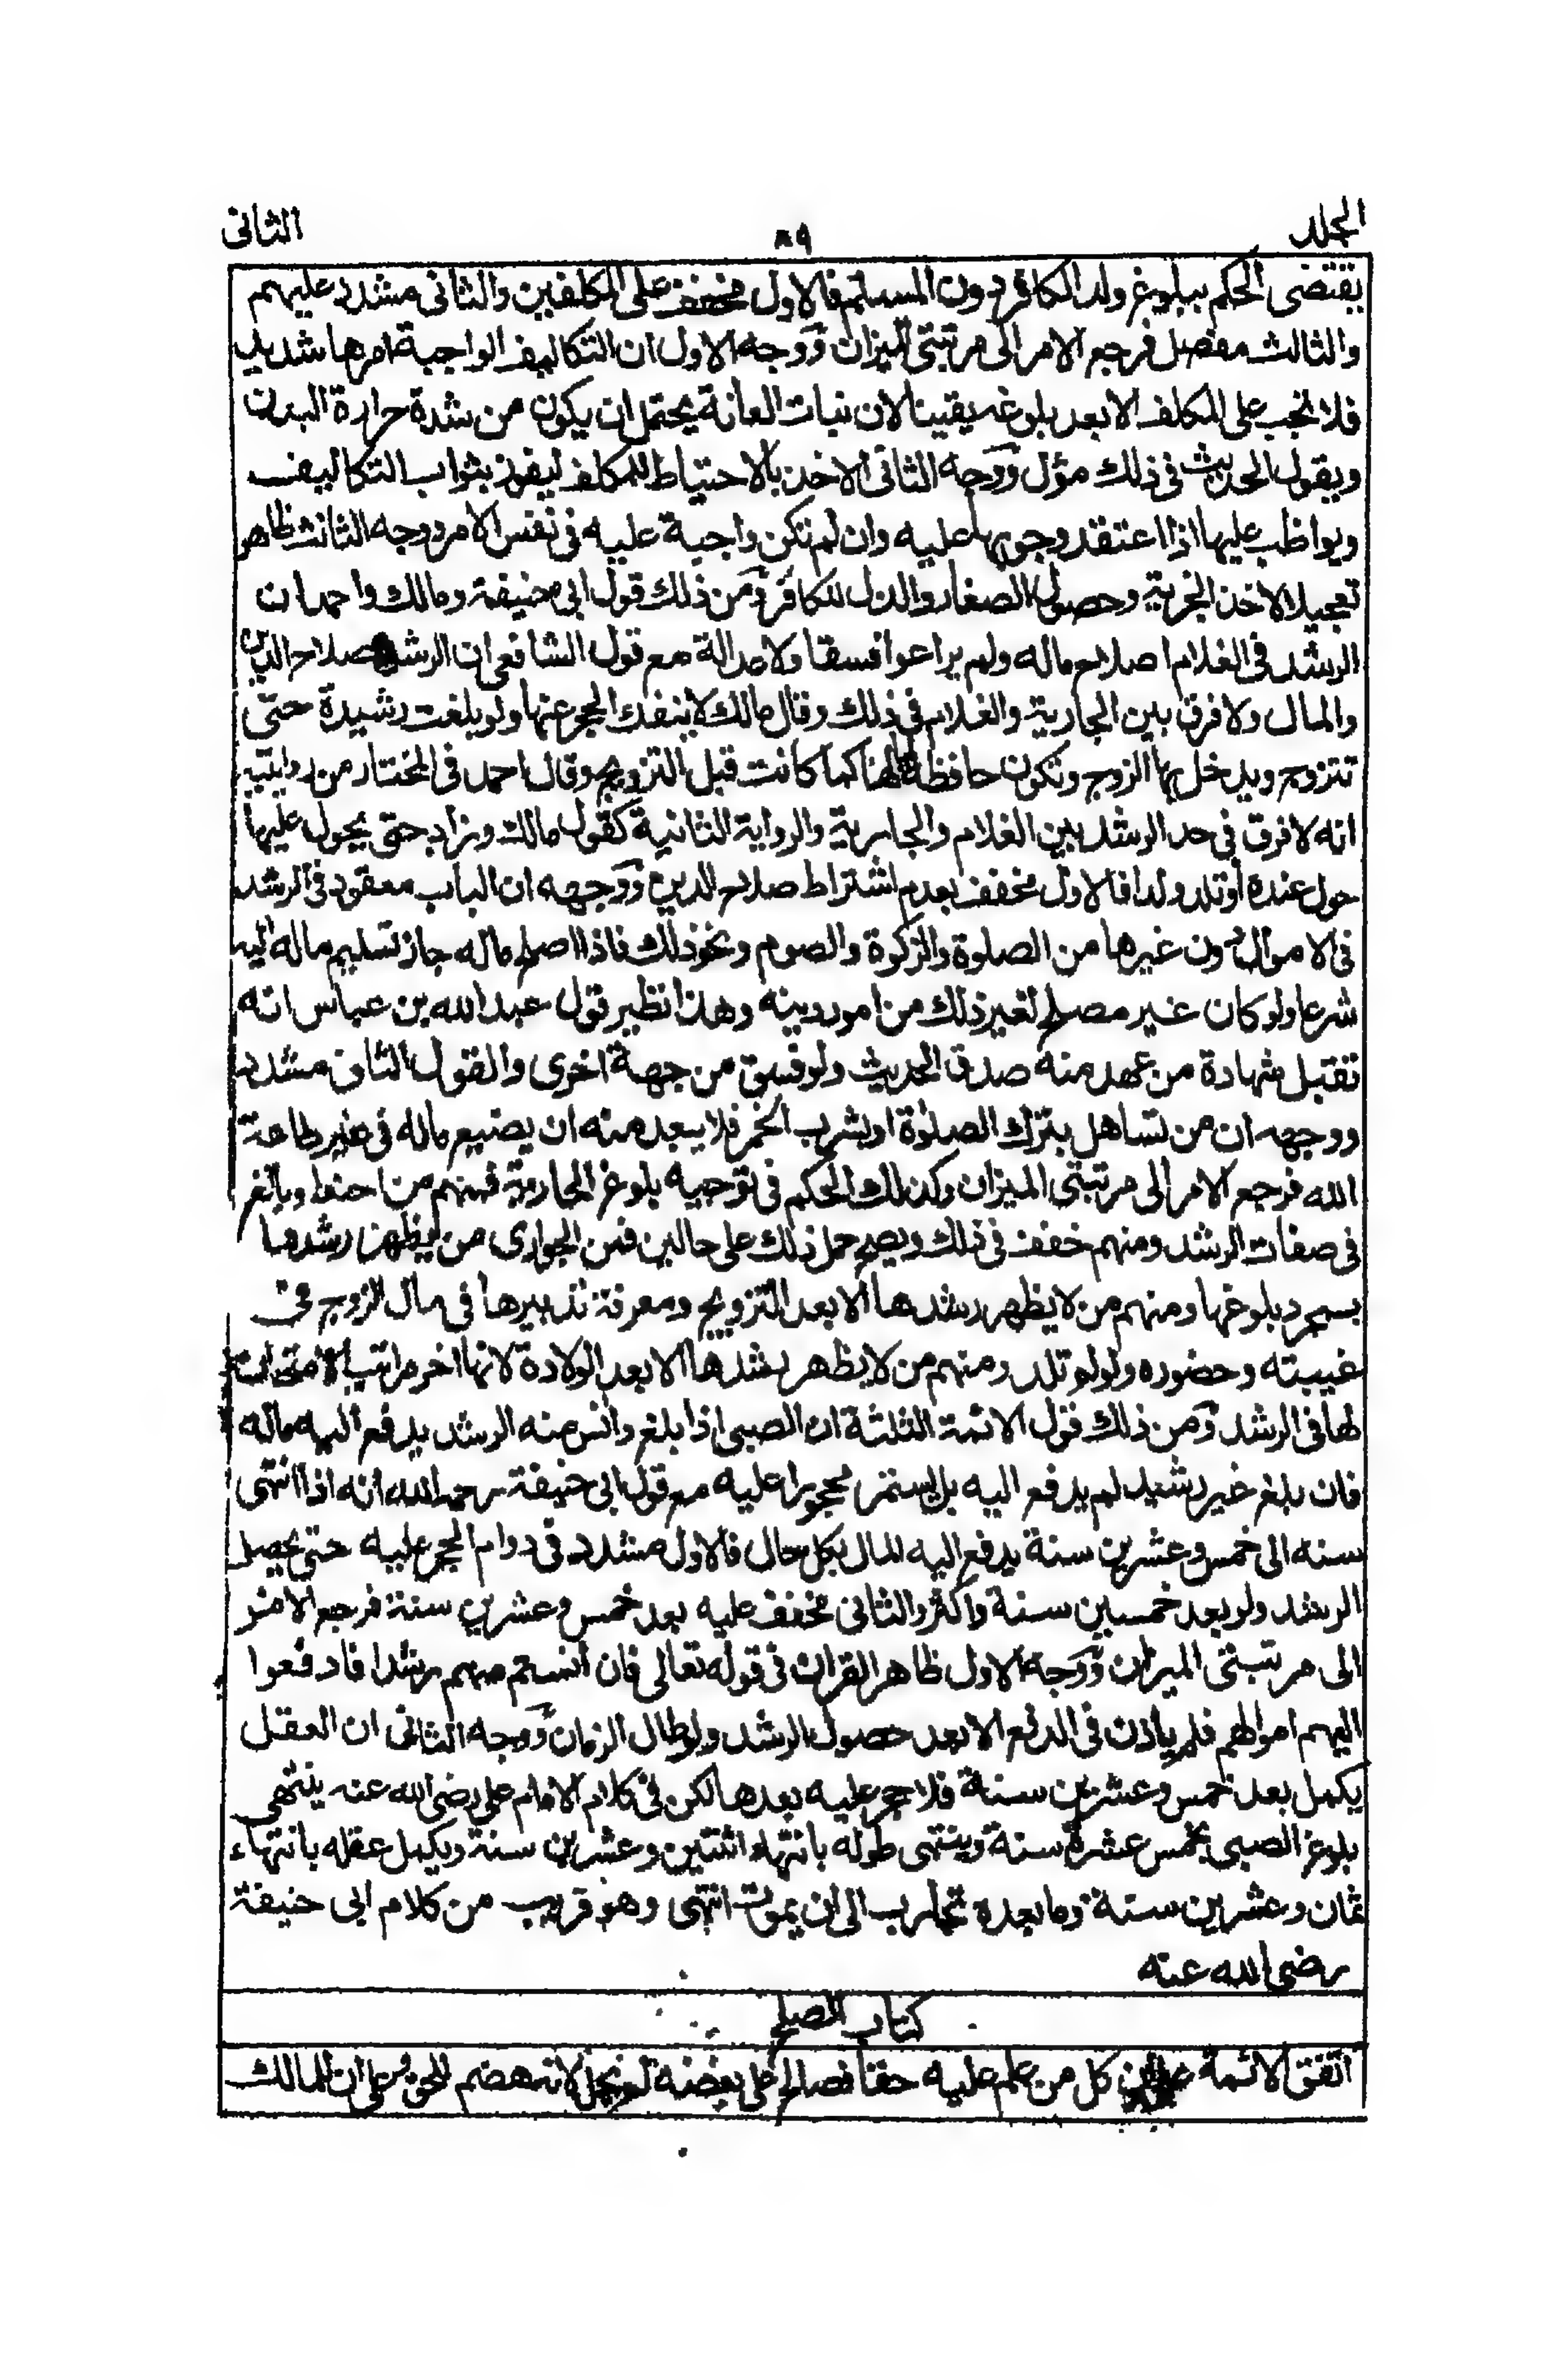 المجلد
٨٩
الثانى
يقتضى الحكم ببلوغ ولد الكافر دون المسلم فالاول مخفف على المكلفين والثانى مشدد عليهم
والثالث مفصل فرجع الامر الى مرتبتى الميزان ووجه الاول ان التكاليف الواجبة امرها شديد
فلا تجب على المكلف الا بعد بلوغه يقينا لان نبات العانة يحتمل ان يكون من شدة حرارة البدن
ويقول الحديث فى ذلك مؤل ووجه الثانى الاخذ بالاحتياط للمكلف ليفوز بثواب التكاليف
ويواظب عليها اذا اعتقد وجوبها عليه وان لم تكن واجبة عليه فى نفس الامر ووجه الثالث ظاهر
تعجيلا لاخذ الجزية وحصول الصغار والذل للكافر ومن ذلك قول ابى حنيفة ومالك واحمد ان
الرشد فى الغلام اصلاح ماله ولم يراعوا فسقا ولا عدالة مع قول الشافعى ان الرشد صلاح الدين
والمال ولا فرق بين الجارية والغلام فى ذلك وقال مالك لا ينفك الحجر عنها ولو بلغت رشيدة حتى
تتزوج ويدخل بها الزوج وتكون حافظة لمالها كما كانت قبل التزويج وقال احمد فى المختار من روايتيه
انه لا فرق فى حد الرشد بين الغلام والجارية والرواية الثانية كقول مالك وزاد حتى يحول عليها
حول عنده أو تلد ولدا فالاول مخفف بعدم اشتراط صلاح الدين ووجهه ان الباب معقود فى الرشد
فى الاموال دون غيرها من الصلوة والزكوة والصوم ونحو ذلك فاذا اصلح ماله جاز تسليم ماله اليه
شرعا ولو كان غير مصلح لغير ذلك من امور دينه وهذا نظير قول عبد الله بن عباس انه
تقبل شهادة من عهد منه صدق الحديث ولو فسق من جهة اخرى والقول الثانى مشدد
ووجهه ان من تساهل بترك الصلوة او بشرب الخمر فلا يبعد منه ان يضيع ماله فى غير طاعة
الله فرجع الامر الى مرتبتى الميزان وكذلك الحكم فى توجيه بلوغ الجارية فمنهم من احتاط وبالغ
فى صفات الرشد ومنهم خفف فى ذلك ويصح حمل ذلك على حالين فمن الجوارى من يظهر رشدها
بمجرد بلوغها ومنهم من لا يظهر رشدها الا بعد التزويج ومعرفة تدبيرها فى مال الزوج فى
غيبته وحضوره ولو لم تلد ومنهم من لا يظهر رشدها الا بعد الولادة لانها اخر مراتب الامتحان
لها فى الرشد ومن ذلك قول الائمة الثلثة ان الصبى اذا بلغ وانس منه الرشد يدفع اليه ماله
فان بلغ غير رشيد لم يدفع اليه بل يستمر محجورا عليه مع قول ابى حنيفة رحمه الله انه اذا انتهى
سنه الى خمس وعشرين سنة يدفع اليه المال بكل حال فالاول مشدد فى دوام الحجر عليه حتى يحصل
الرشد ولو بعد خمسين سنة واكثر والثانى مخفف عليه بعد خمس وعشرين سنة فرجع الامر
الى مرتبتى الميزان ووجه الاول ظاهر القران فى قوله تعالى فان أنستم منهم رشدا فادفعوا
اليهم اموالهم فلم ياذن فى الدفع الا بعد حصول الرشد ولو طال الزمان ووجه الثانى ان العقل
يكمل بعد خمس وعشرين سنة فلا حجر عليه بعدها لكن فى كلام الامام على رضى الله عنه ينتهى
بلوغ الصبى بخمس عشرة سنة وينتهى طوله بانتهاء اثنتين وعشرين سنة ويكمل عقله بانتهاء
ثمان وعشرين سنة وما بعده تجارب الى ان يموت انتهى وهو قريب من كلام ابى حنيفة
رضى الله عنه
كتاب الصلح
اتفق الائمة على ان كل من علم عليه حقا فصالح على بعضه لم يحل لانه هضم للحق وعلى ان للمالك